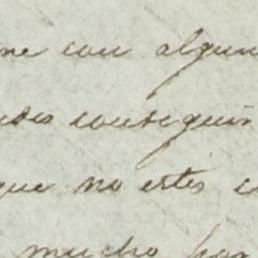 me con algun
udes conseguir
que no estés c
mucho por